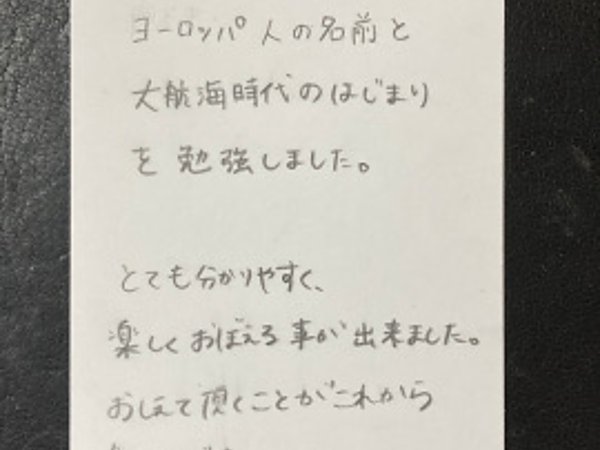 ヨーロッパ人の名前と
大航海時代のはじまり
を勉強しました。
とても分かりやすく、
楽しくおぼえる事が出来ました。
おしえて頂くことがこれから